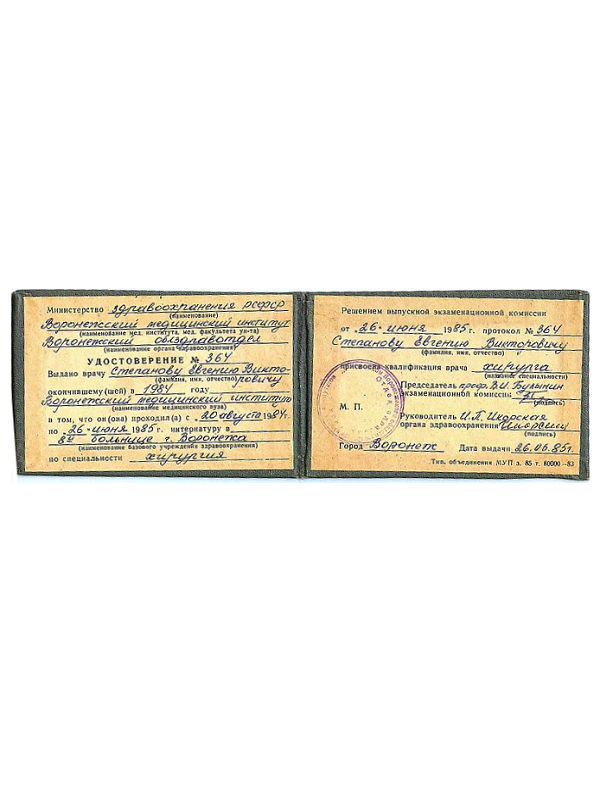 Министерство здравоохранения РСФСР
(наименование)
Воронежский медицинский институт
(наименование мед. института, мед. факультета ун-та)
Воронежский облздравотдел
(наименование органа здравоохранения)
УДОСТОВЕРЕНИЕ № 364
Выдано врачу Степанову Евгению Викто-
(фамилия, имя, отчество) ровичу
окончившему(шей) в 1984 году
Воронежский медицинский институт
(наименование медицинского вуза)
в том, что он(она) проходил(а) с 20 августа 1984 г.
по 26 июня 1985 г. интернатуру в
8й больнице г. Воронежа
(наименование базового учреждения здравоохранения)
по специальности хирургия
Решением выпускной экзаменационной комиссии
от 26 июня 1985 г. протокол № 364
Степанову Евгению Викторовичу
(фамилия, имя, отчество)
присвоена квалификация врача хирурга
(наименование специальности)
Председатель проф. В.И. Булынин
экзаменационной комиссии:
(подпись)
М. П.
Руководитель И.П.
органа здравоохранения
(подпись)
Город Воронеж Дата выдачи 26.06.85г.
Тип. объединения МУП з. 85 т. 80000—83